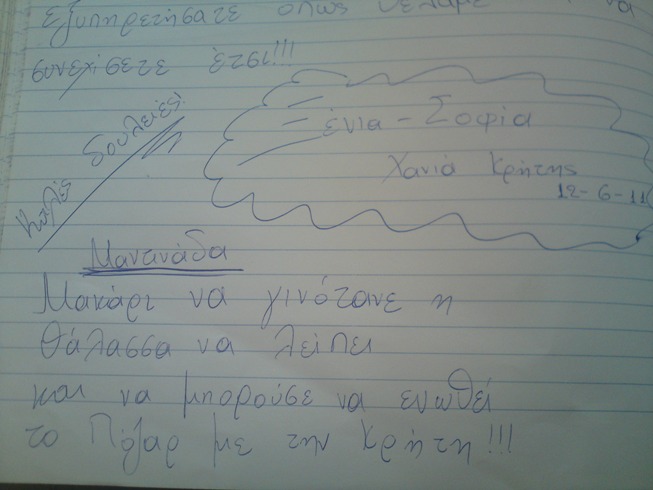 εξυπηρετήσατε όπως θέλαμε να
συνεχίσετε έτσι!!!
Καλές δουλειές!
Ξένια - Σοφία
Χανιά Κρήτης
12-6-11
Μαντινάδα
Μακάρι να γινότανε η
θάλασσα να λείπει
και να μπορούσε να ενωθεί
το Πόζαρ με την Κρήτη!!!